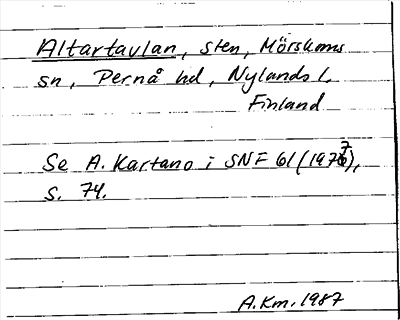 Altartavlan, sten, Mörskoms
sn, Pernå hd, Nylands l,
Finland
Se A. Kartano i SNF 61 (1977),
s. 74.
A.Km. 1987